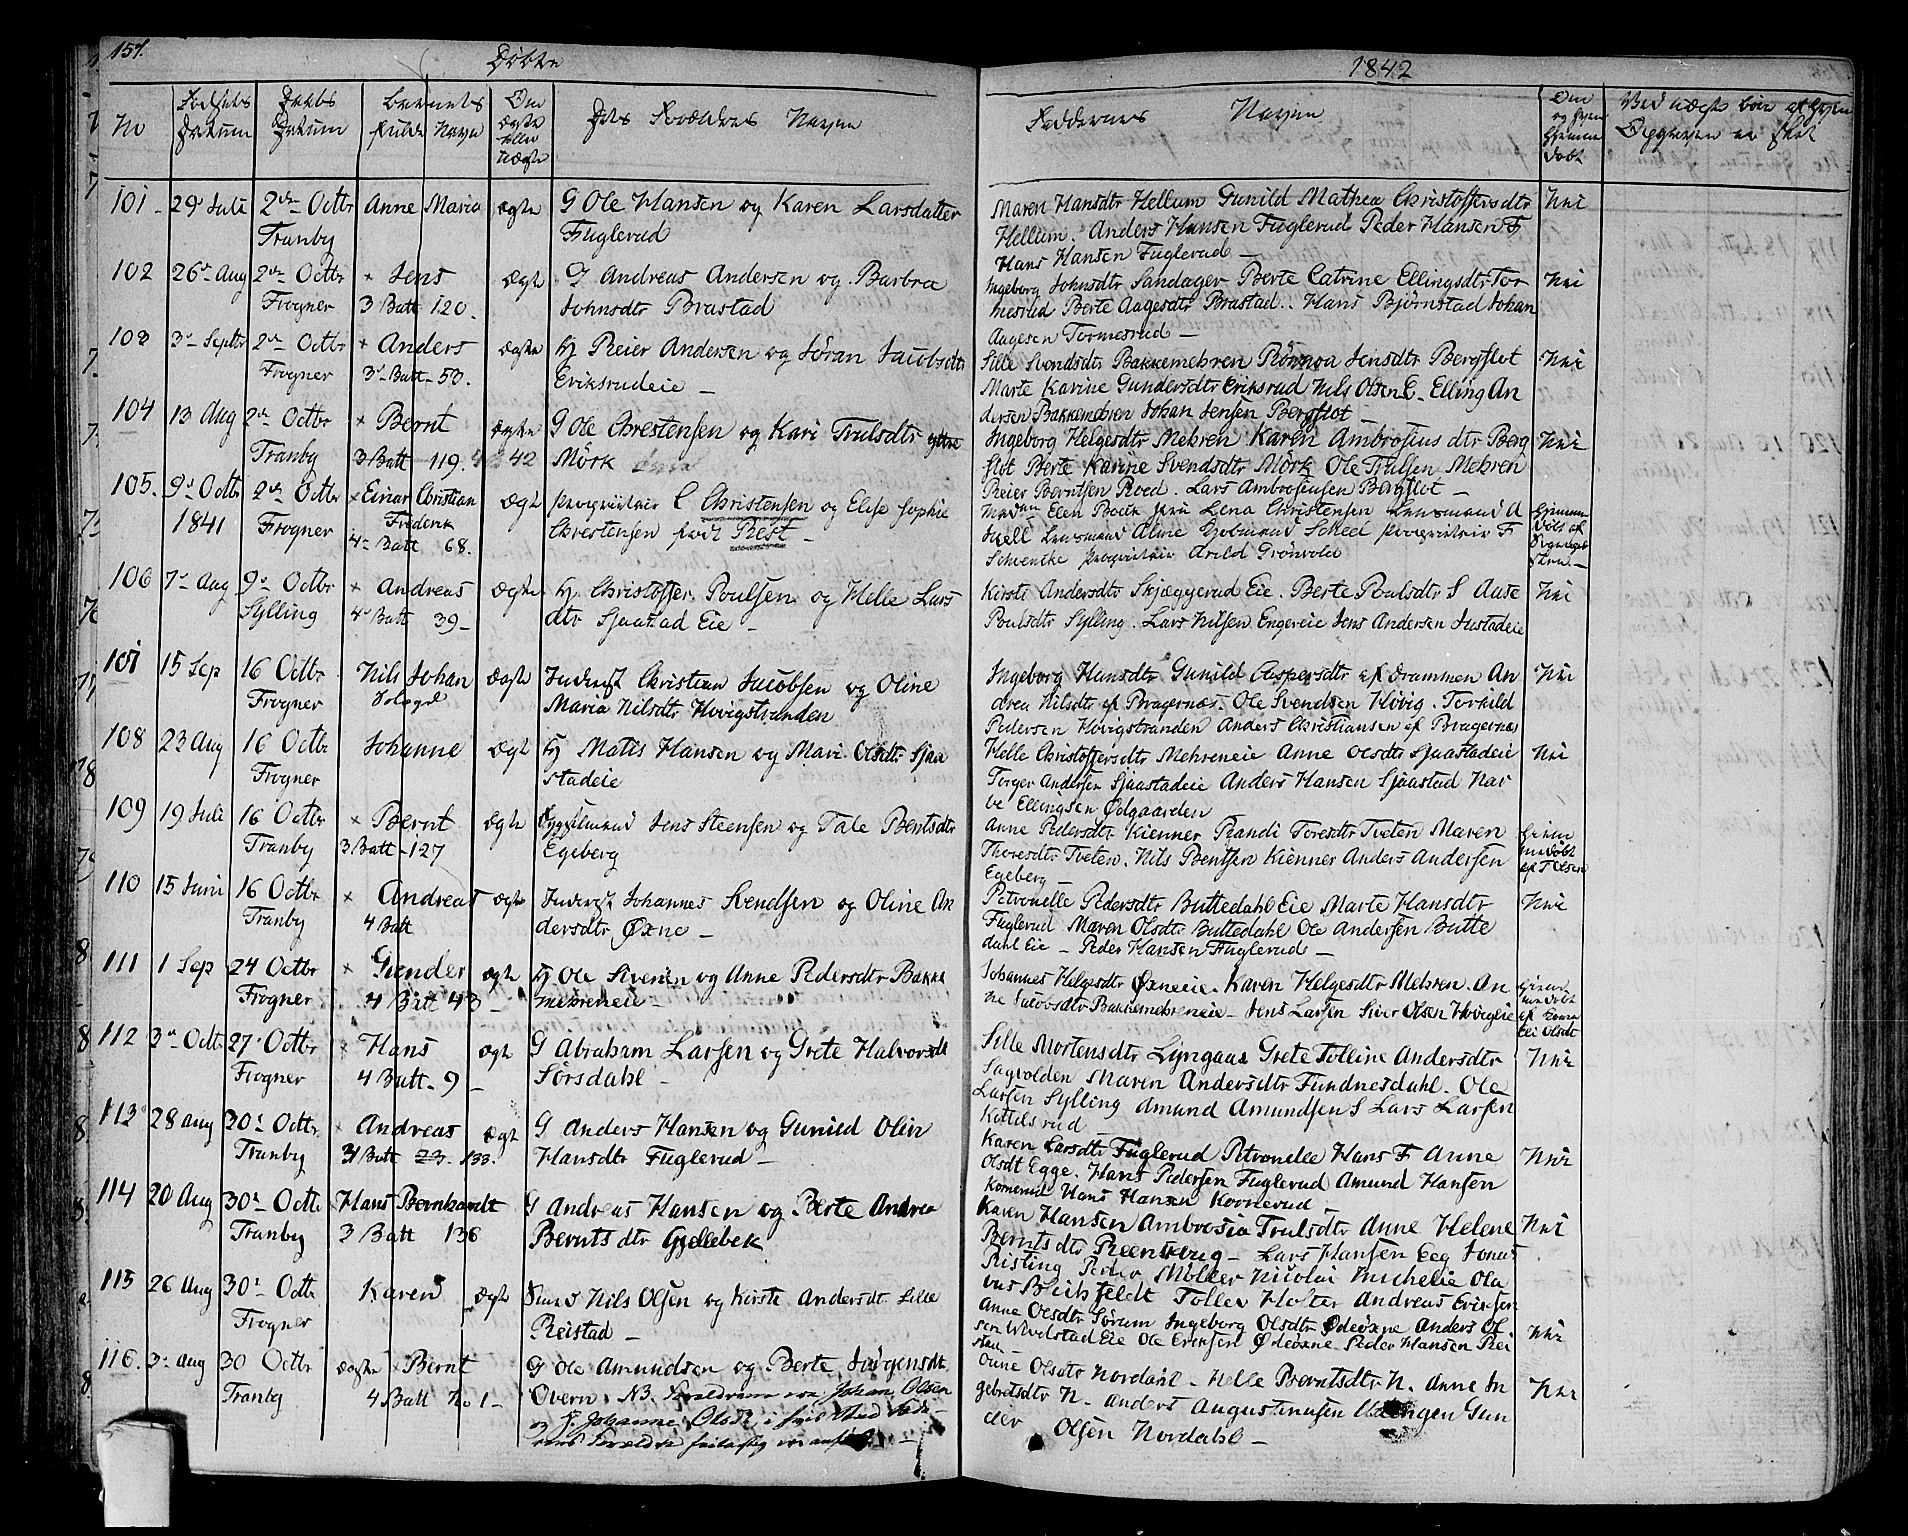 157.
Döbte
1842
No
Födsels Datum
Daabs Datum
Barnets fulde Navn
Om ægte eller uægte
Dets Forældres Navne
Faddernes Navne
Om og hvem hjemme döbt
Ved uægte
101 29 Juli 2den Octbr Tranby Anne Maria ægte
G Ole Hansen og Karen Larsdatter
Fuglerud
Maren Hansdtr Hellum Gunild Mathea Christoffersdtr
Hellum. Anders Hansen Fuglerud Peder Hansen F
Hans Hansen Fuglerud —
Nei
102 26 Aug 2den Octbr Frogner × Jens
3 Batt 120. ægte
G Andreas Andersen og Barbra
Johnsdtr Brastad
Ingeborg Johnsdtr Sandager Berte Catrine Ellingsdtr Tor
mesrud Berte Aagesdtr Brastad. Hans Björnstad Johan
Aagesen Tormesrud —
Nei
103 3 Septbr 2den Octbr Frogner × Anders
3 Batt 53. ægte
Hj Reier Andersen og Jöran Jacobsdtr
Eriksrudeie —
Sille Svendsdtr Bakkemehren Jensdtr Bergflot
Marte Karine Gundersdtr Eriksrud Nils Olsen E. Elling An
dersen Bakkemehren Johan Jensen Bergflot —
Nei
104 13 Aug 2den Octbr Tranby × Bernt
3 Batt 119. ægte 42
G Ole Chrestensen og Kari Trulsdtr yttre
Mörk
Ingeborg Helgesdtr Mehren Karen Ambrosius dtr Berg
flot Berte Karine Svendsdtr Mörk Ole Trulsen Mehren
Reier Berntsen Roed. Lars Ambrosiussen Bergflot —
Nei
105. 9 Octbr 1841 2den Octbr Frogner × Einar Christian
Frederik
4 Batt 68. ægte
Proprietair C Christensen og Elise Sophie
Christensen födt Rest —
Elen Lena Christensen Lensmand A
Lensmand Aline Scheel Proprietair F
Schwencke Proprietair Arild Grönvold
106 7 Aug 9 Octbr Sylling × Andreas
4 Batt 39 — ægte
Hj. Christoffer Poulsen og Helle Lars
dtr Sjaastad Eie —
Kirsti Andersdtr Skjæggerud Eie. Berte Poulsdtr S Aase
Poulsdtr Sylling. Lars Nilsen Engereie Jens Andersen Justadeie
Nei
107 15 Sep 16 Octbr Frogner Nils Johan
ægte
Inderst Christian Jacobsen og Oline
Maria Nilsdtr Hovigstranden
Ingeborg Hansdtr Gunild Caspersdtr af Drammen An
drea Nilsdtr af Bragernæs. Ole Svendsen Hövig. Torkild
Pedersen Hovigstranden Anders Christiansen af Bragernæs
Nei
108 23 Aug 16 Octbr Frogner Johanne ægte
Hj Matis Hansen og Mari Olsdtr Sjaa
stadeie
Helle Christoffersdtr Mehreneie Anne Olsdtr Sjaastadeie
Torger Andersen Sjaastadeie Anders Hansen Sjaastad Har
Ellingsen Ödgaarden
Nei
109 19 Juli 16 Octbr Tranby × Bernt
3 Batt - 127 ægte
Jens Steensen og Tale Bentsdtr
Egeberg
Anne Pedersdtr Kienner Randi Toresdtr Tveten Maren
Thoresdtr Tveten. Nils Bentsen Kienner Anders Andersen
Egeberg —
110 15 Juni 16 Octbr Tranby × Andreas
4 Batt ægte
Inderst Johannes Svendsen og Oline An
dersdtr Öxne —
Petronelle Pedersdtr Buttedahl Eie Marte Hansdtr
Fuglerud Maren Olsdtr Buttedahl Ole Andersen Butte
dahl Eie — Peder Hansen Fuglerud —
Nei
111 1 Sep 24 Octbr Frogner × Gunder
4 Batt 43 — ægte
Hj Ole Siversen og Anne Pedersdtr Bakke
mehreneie —
Johannes Helgesdtr Öxneeie. Karen Helgesdtr Mehren. An
ne Jacobsdtr Bakkemehreneie — Jens Larsen Siver Olsen Hovigeie
112 3 Octbr 27 Octbr Frogner × Hans
4 Batt. 9 — ægte
G Abraham Larsen og Grete Halvorsdtr
Sörsdahl —
Sille Mortensdtr Lyngaas Grete Tolline Andersdtr
Sagvolden Maren Andersdtr Fundnesdahl. Ole
Larsen Sylling Amund Amundsen S Lars Larsen
Kittelsrud
Nei
113 28 Aug 30 Octbr Tranby × Andreas
3 Batt 23. 133. ægte
G Anders Hansen og Gunild Olin
Hansdtr Fuglerud —
Karen Larsdtr Fuglerud Petronelle Hans F Anne
Olsdt Egge. Hans Pedersen Fuglerud Amund Hansen
Kornerud Hans Hansen Kornerud —
Nei
114 20 Aug 30 Octbr Tranby Hans Bernhardt
3 Batt 136
G Andreas Hansen og Berte Andrea
Bernts dtr Gjellebek
Karen Hansen Ambrosia Trulsdtr Anne Helene
Berntsdtr Reenskoug — Lars Hansen Eeg Jonas
Risting Peder Möller Nicolai Michelie Ola
us Blichfeldt Tollev Holter Andreas Eriksen
Nei
115 26 Aug 30 Octbr Frogner Karen ægte
Nils Olsen og Kirste Andersdt Lille
Reistad —
Anne Olsdtr Sörum Ingeborg Olsdtr Ödeöxne Anders Ol
sen Wivelstad Eie Ole Eriksen Ödeöxne Peder Hansen Rei
stad —
Nei
116. 3 Aug 30 Octbr Tranby ægte × Bernt
4 Batt No 1 —
G Ole Amundsen og Berte Jörgensdt
Overn. NB. Johan Olsen
og Johanne Olsdt
Anne Olsdtr Nordahl — Helle Berntsdtr N. Anne In
gebretsdtr N. Anders Augustinussen Gun
der Olsen Nordahl —
Nei